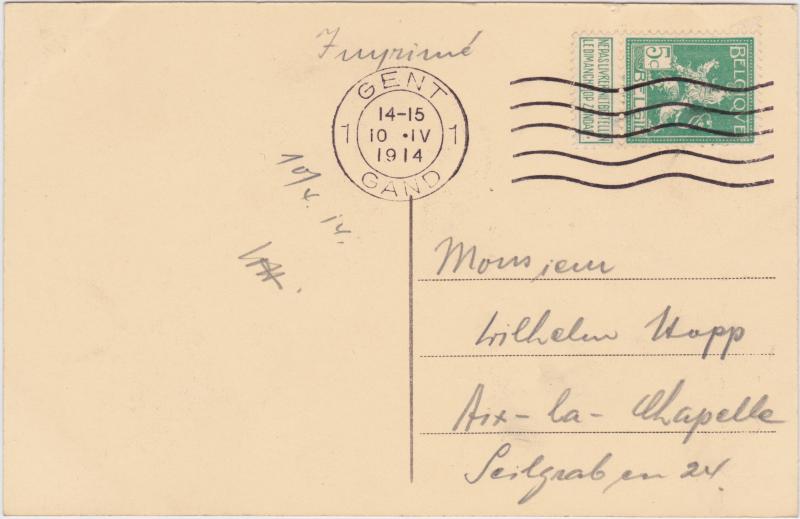 Imprimé
GENT
14-15
1 10 •IV 1
1914
GAND
NE PAS LIVRER
LE DIMANCHE
NIET BESTELLEN
OP ZONDAG.
5c
BELGIQUE
BELGIË
10/4.14.
Monsieur
Wilhelm Hopp
Aix-la-Chapelle
Seilgraben 24.